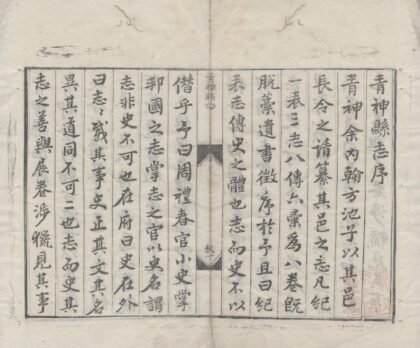 青神縣志序
青神余內翰方池子以其邑
長令之請纂其邑之志凡紀
一表三志八傳六彙爲八卷既
脫藁遺書徵序於予且曰紀
表志傳史之體也志而史不以
僭乎予曰周禮春官小史掌
邦國之志掌志之官以史名謂
志非史不可也在府曰史在外
曰志志識其事史正其文其名
異其道同不可二也志而史其
志之善與展卷涉獵見其事